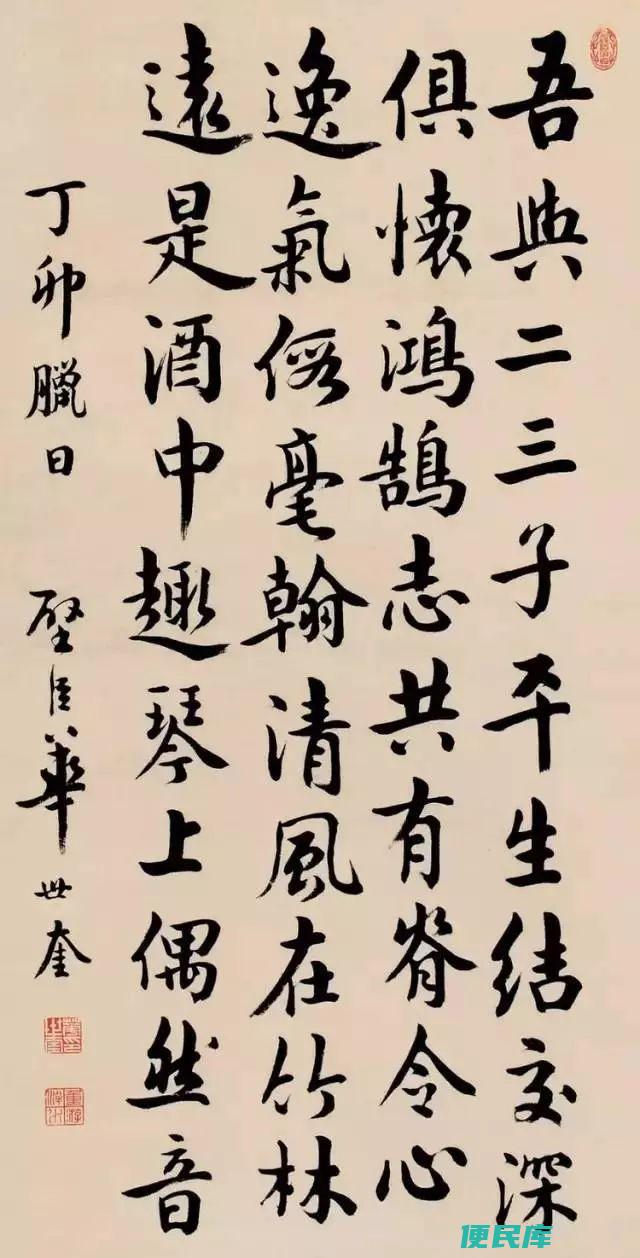 吾與二三子平生結交深
俱懷鴻鵠志共有脊令心
逸氣俗毫翰清風在竹林
遠是酒中趣琴上偶然音
丁卯臘日
壁臣華世奎
便民库